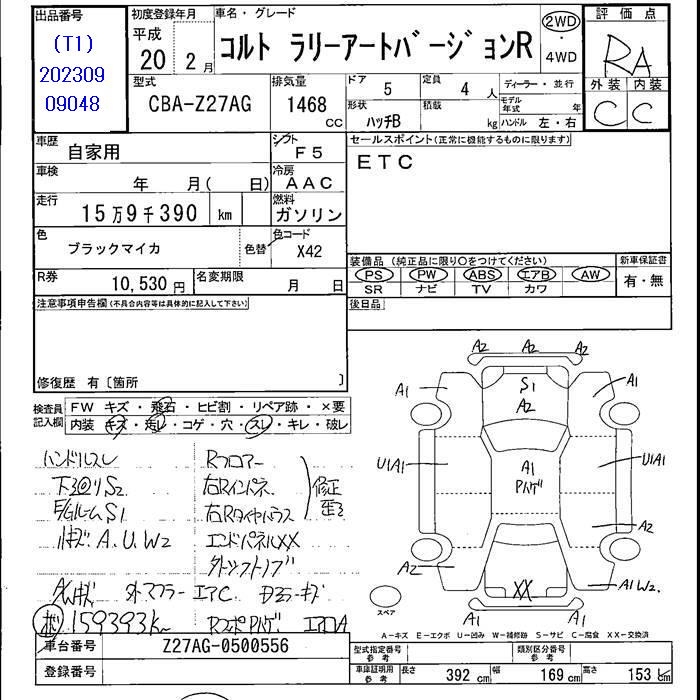 出品番号
(T1)
202309
09048
初度登録年月
平成
20 2月
車名・グレード
コルト ラリーアートバージョンR
2WD
・
4WD
評価点
RA
外装 内装
C C
型式
CBA-Z27AG
排気量
1468
CC
ドア
5
定員
4 人
ディーラー・並行
形状
ハッチB
積載
kg
モデル年式 年
ハンドル 左・右
車歴
自家用
シフト
F5
車検
年 月( 日)
冷房
AAC
走行
15万9千390 km
燃料
ガソリン
色
ブラックマイカ
色替
色コード
X42
R券
10,530円
名変期限
月 日
セールスポイント(正常に機能するものに限ります)
ETC
装備品 (純正品に限り○をつけてください)
PS PW ABS エアB AW
SR ナビ TV カワ
新車保証書
有・無
後日品
注意事項申告欄(不具合内容等は具体的に記入して下さい)
修復歴 有〔箇所 〕
検査員記入欄
FW キズ・飛石・ヒビ割・リペア跡・×要
内装 キズ・汚レ・コゲ・穴・スレ・キレ・破レ
ハンドルスレ
下廻りS2
E/GルームS1
A.U.W2
Rフロアー
右Rインパネ
右Rタイヤハウス
エンドパネルXX
修正
歪る
外マフラー エアC
159393k
A2 A2 A2
A1 A1
S1
A2
U1A1 U1A1
A1
Pハゲ
A2
A2
XX
A1W2.
A1 A1
スペア
A-キズ E-エクボ U-凹み W-補修跡 S-サビ C-腐食 XX-交換済
車台番号
Z27AG-0500556
登録番号
型式指定番号
参考
類別区分番号
参考
車庫証明用
参考
長さ 392 cm 幅 169 cm 高さ 153 cm